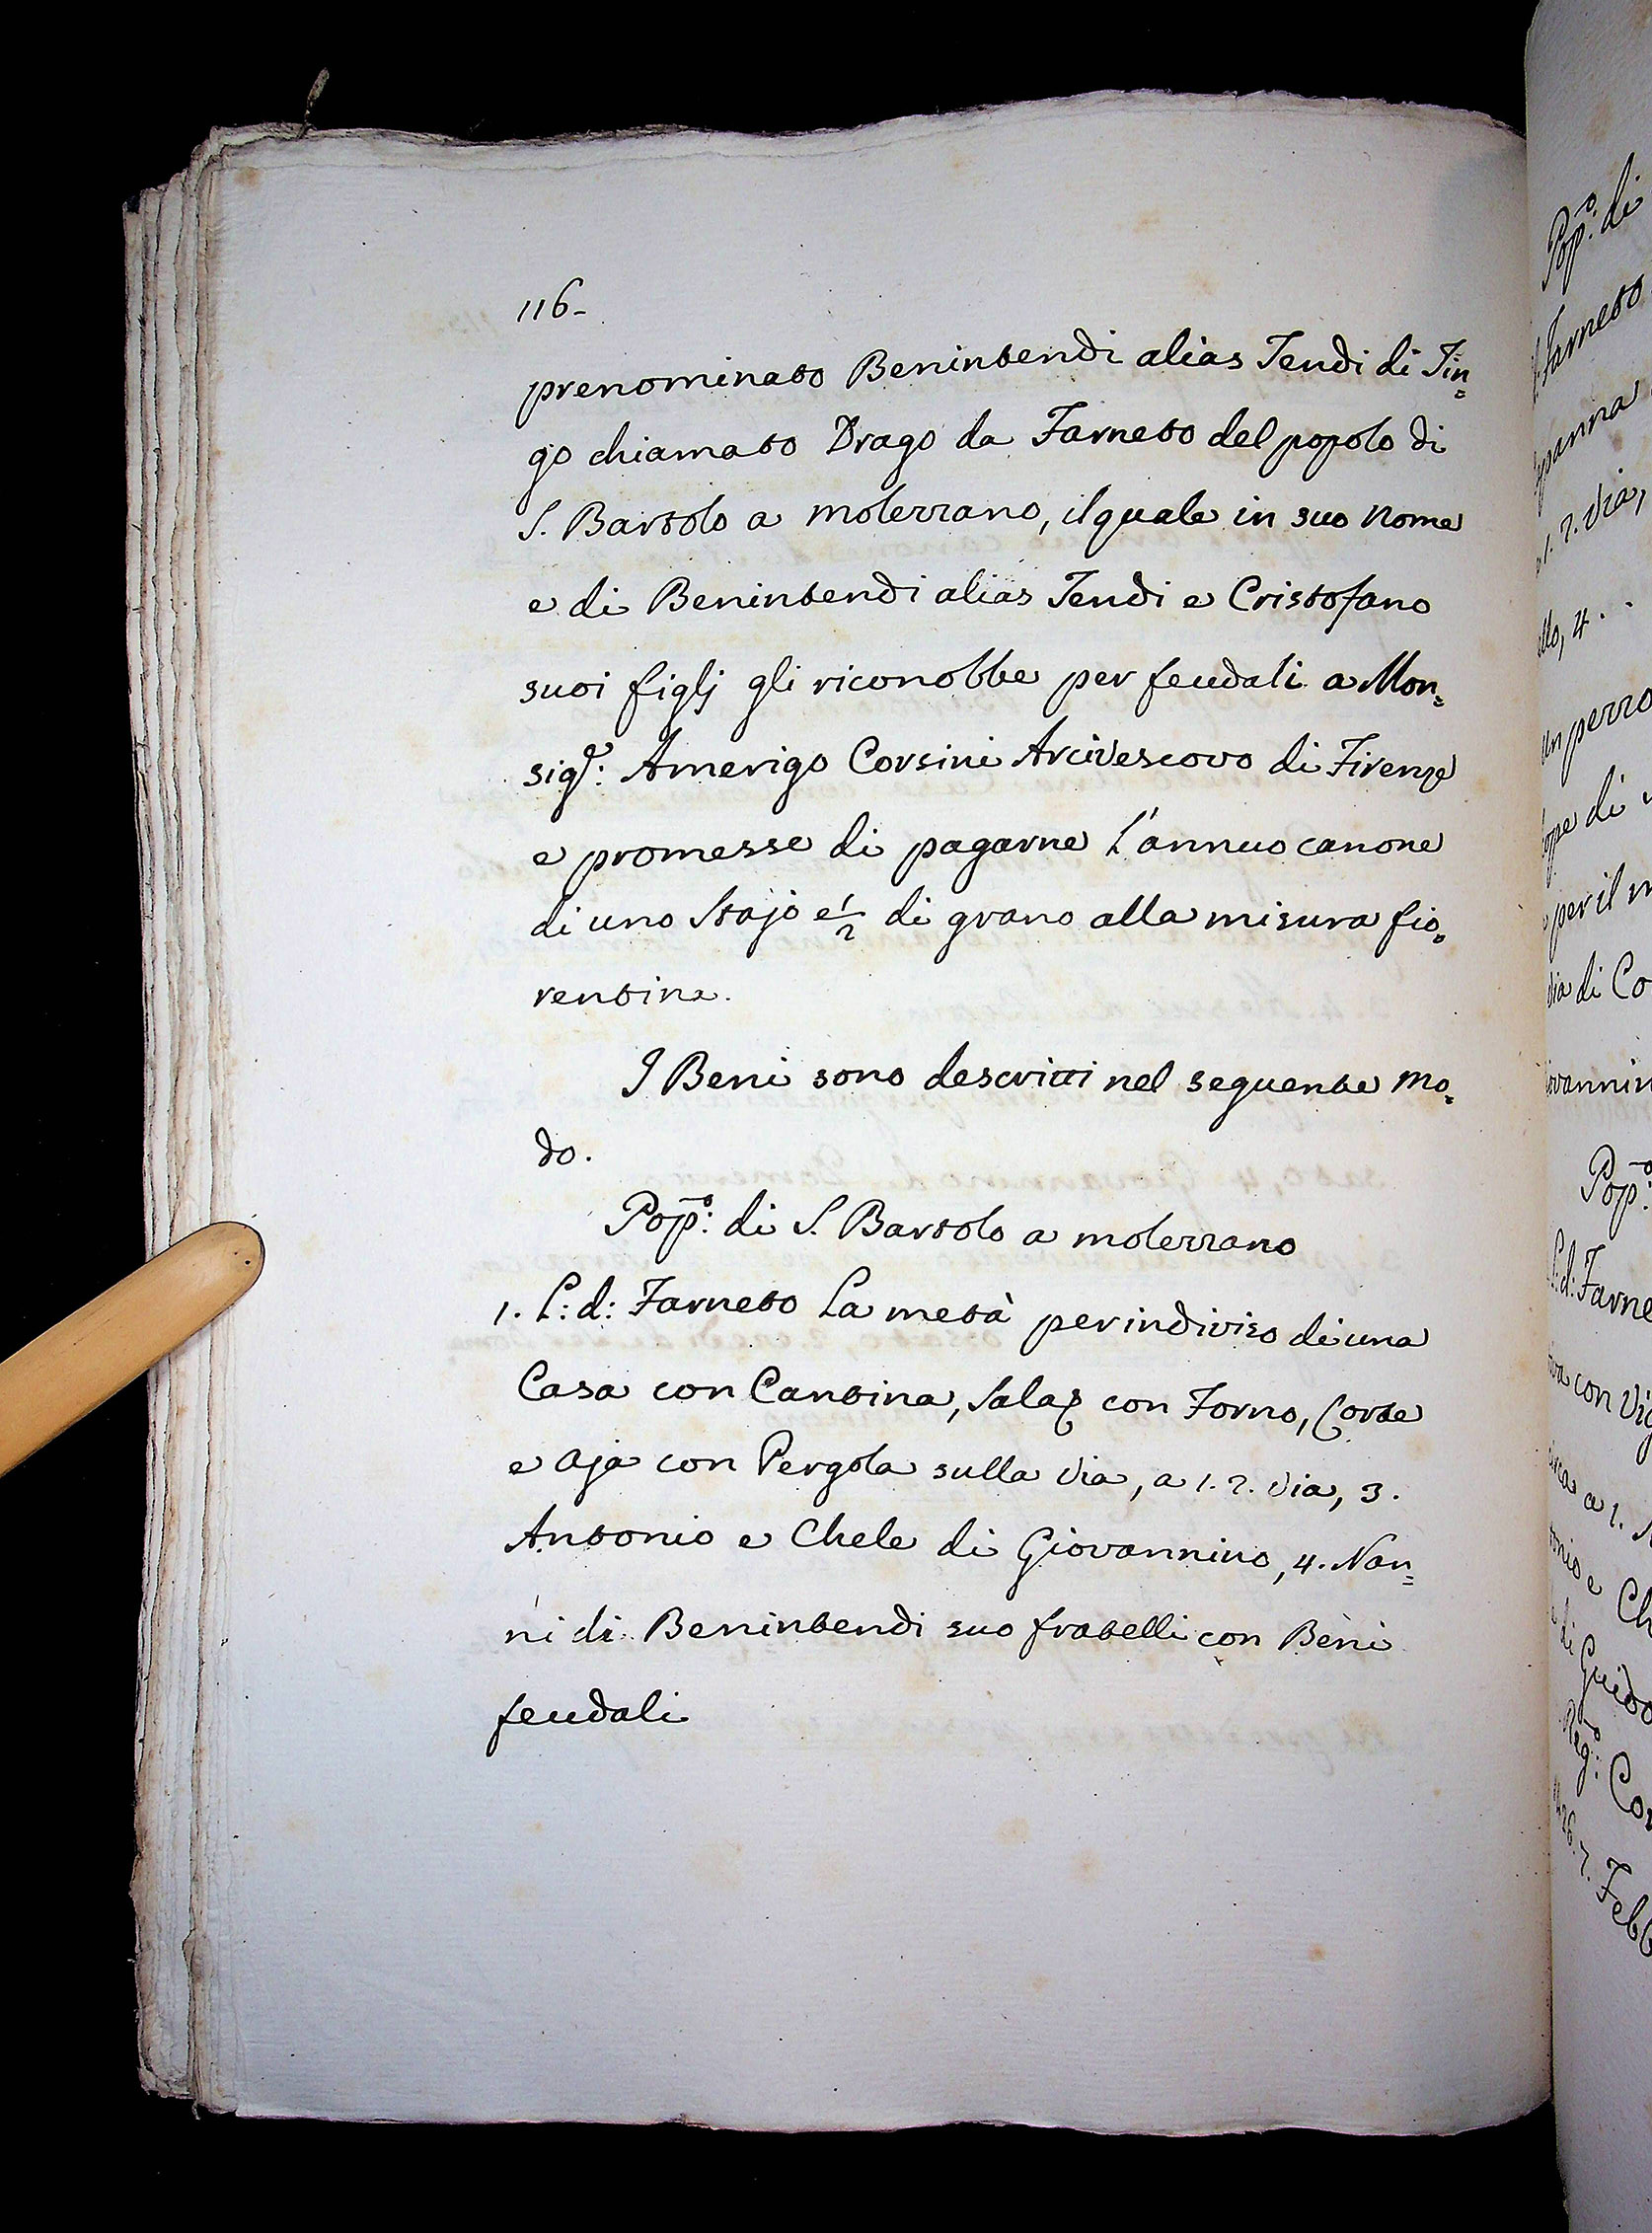 116-
prenominato Benintendi alias Tendi di Tin=
go chiamato Drago da Farneto del popolo di
S. Bartolo a molezzano, il quale in suo nome
e di Benintendi alias Tendi e Cristofano
suoi figlj gli riconobbe per feudali a Mon=
sigr: Amerigo Corsini Arcivescovo di Firenze
e promesse di pagarne l'annuo canone
di uno Stajo e 1/2 di grano alla misura fio=
rentina.
I Beni sono descritti nel seguente mo=
do.
Popo: di S. Bartolo a molezzano
1. L: d: Farneto La metà per indiviso di una
Casa con Cantina, Sala, con Forno, Corte
e Aja con Pergola sulla via, a 1. 2. via, 3.
Antonio e Chele di Giovannino, 4. Nan=
ni di Benintendi suo fratelli con Beni
feudali
Popo: di
Farneto
1. 2. via,
per il
via di Co
Popo:
L: d: Farne
con
a 1.
e Ch
di Guido
Rego: Co
7. Febb